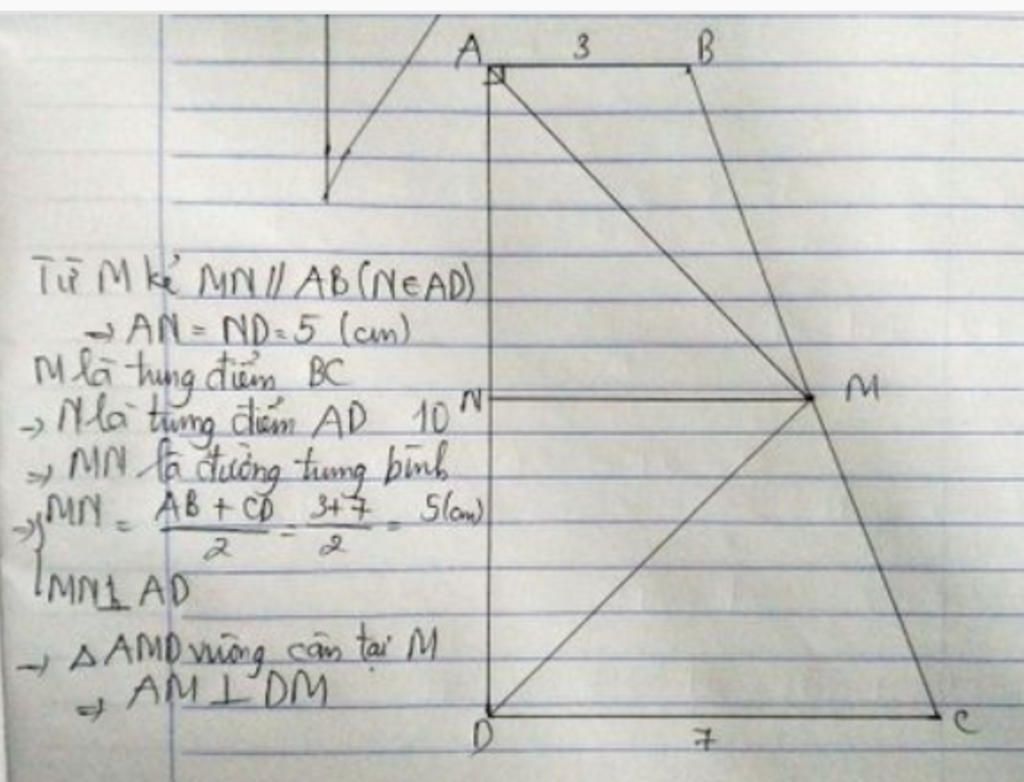 A 3 B
Từ M kẻ MN // AB (N∈AD)
→ AN = ND = 5 (cm)
M là trung điểm BC
→ N là trung điểm AD 10
N M
→ MN là đường trung bình
→ { MN = AB + CD / 2 = 3+7 / 2 = 5(cm)
MN ⊥ AD
→ Δ AMD vuông cân tại M
→ AM ⊥ DM
D 7 C